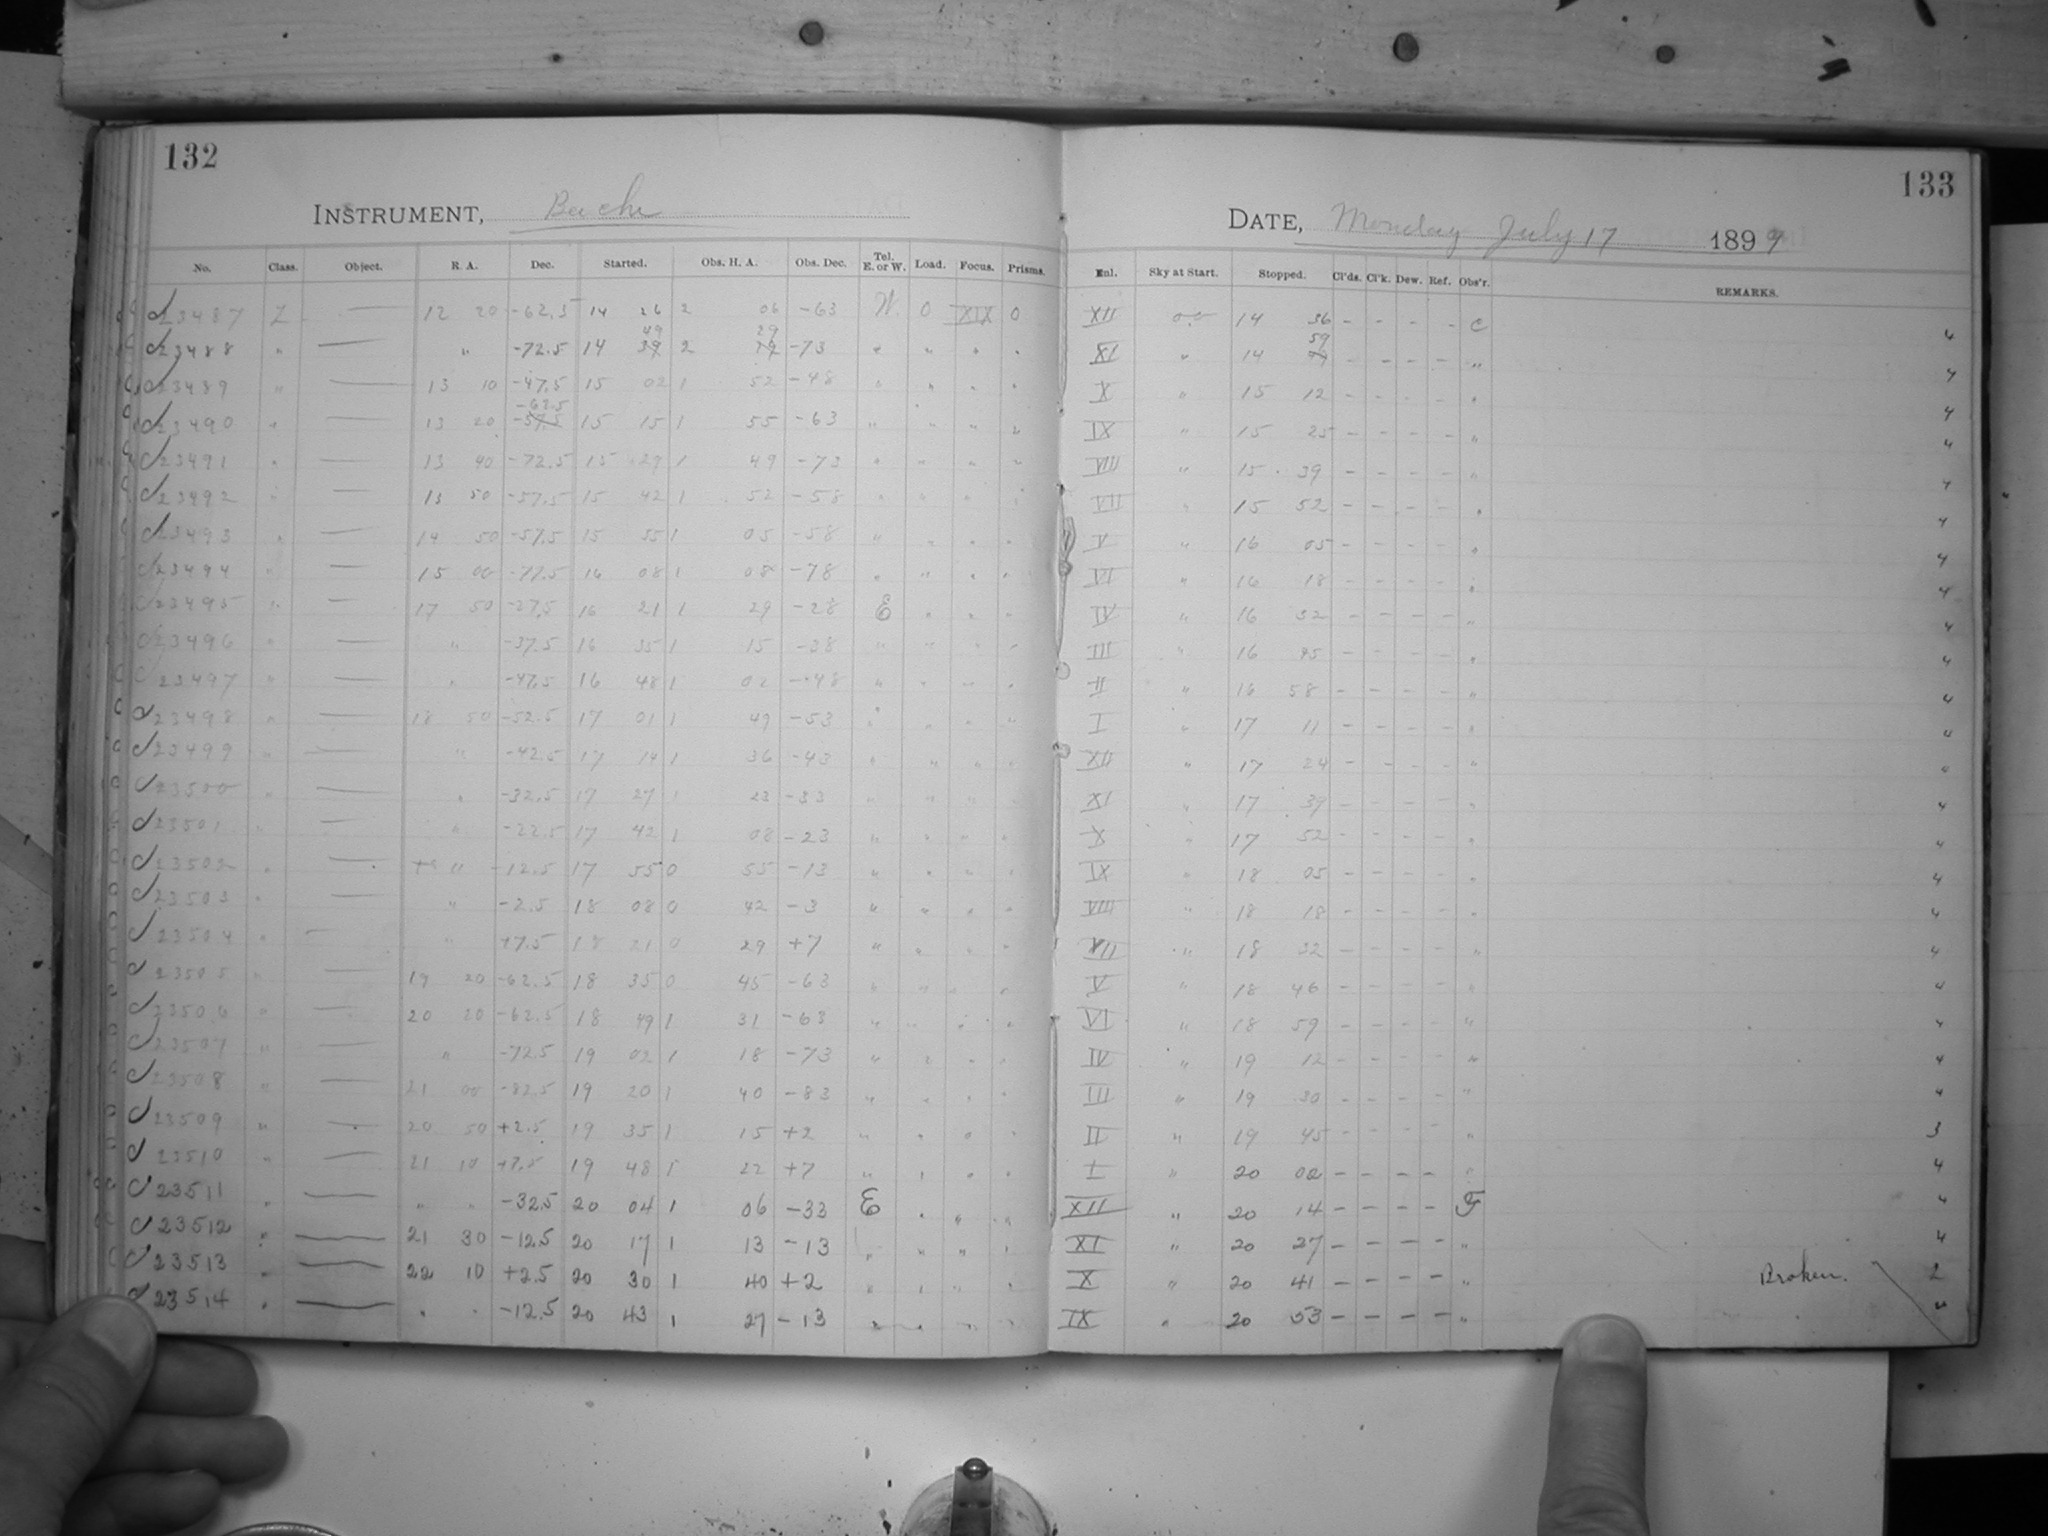 132
133
INSTRUMENT, Bache
DATE, Monday July 17 1899
No. Class. Object. R. A. Dec. Started. Obs. H. A. Obs. Dec. Tel. E. or W. Load. Focus. Prisms. Enl. Sky at Start. Stopped. Cl'ds. Cl'k. Dew. Ref. Obs'r. REMARKS.
23487 Z — 12 20 -62.5 14 26 2 06 -63 W. 0 XIX 0 XII 14 36 - - - - C 4
49 29 59
23488 " — " -72.5 14 39 2 19 -73 " " " " XI " 14 49 - - - - " 4
23489 " — 13 10 -47.5 15 02 1 52 -48 " " " " X " 15 12 - - - - " 4
-62.5
23490 " — 13 20 -57.5 15 15 1 55 -63 " " " " IX " 15 25 - - - - " 4
23491 " — 13 40 -72.5 15 29 1 49 -73 " " " " VIII " 15 39 - - - - " 4
23492 " — 13 50 -57.5 15 42 1 52 -58 " " " " VII " 15 52 - - - - " 4
23493 " — 14 50 -57.5 15 55 1 05 -58 " " " " V " 16 05 - - - - " 4
23494 " — 15 00 -77.5 16 08 1 08 -78 " " " " VI " 16 18 - - - - " 4
23495 " — 17 50 -27.5 16 21 1 29 -28 E " " " IV " 16 32 - - - - " 4
23496 " — " -37.5 16 35 1 15 -38 " " " " III " 16 45 - - - - " 4
23497 " — " -47.5 16 48 1 02 -48 " " " " II " 16 58 - - - - " 4
23498 " — 18 50 -52.5 17 01 1 49 -53 " " " " I " 17 11 - - - - " 4
23499 " — " -42.5 17 14 1 36 -43 " " " " XII " 17 24 - - - - "
23500 " — " -32.5 17 27 1 23 -33 " " " " XI " 17 39 - - - - " 4
23501 " — " -22.5 17 42 1 08 -23 " " " " X " 17 52 - - - - " 4
23502 " — " -12.5 17 55 0 55 -13 " " " " IX " 18 05 - - - - " 4
23503 " — " -2.5 18 08 0 42 -3 " " " " VIII " 18 18 - - - - " 4
23504 " — " +7.5 18 21 0 29 +7 " " " " VII " 18 32 - - - - " 4
23505 " — 19 20 -62.5 18 35 0 45 -63 " " " " V " 18 46 - - - - " 4
23506 " — 20 20 -62.5 18 49 1 31 -63 " " " " VI " 18 59 - - - - " 4
23507 " — " -72.5 19 02 1 18 -73 " " " " IV " 19 12 - - - - " 4
23508 " — 21 00 -82.5 19 20 1 40 -83 " " " " III " 19 30 - - - - " 4
23509 " — 20 50 +2.5 19 35 1 15 +2 " " " " II " 19 45 - - - - " 3
23510 " — 21 10 +7.5 19 48 1 22 +7 " " " " I " 20 02 - - - - " 4
23511 " — " " -32.5 20 04 1 06 -33 E " " " XII " 20 14 - - - - F 4
23512 " — 21 30 -12.5 20 17 1 13 -13 " " " " XI " 20 27 - - - - " 4
23513 " — 22 10 +2.5 20 30 1 40 +2 " " " " X " 20 41 - - - - " Broken. 2
23514 " — " " -12.5 20 43 1 27 -13 " " " " IX " 20 53 - - - - "